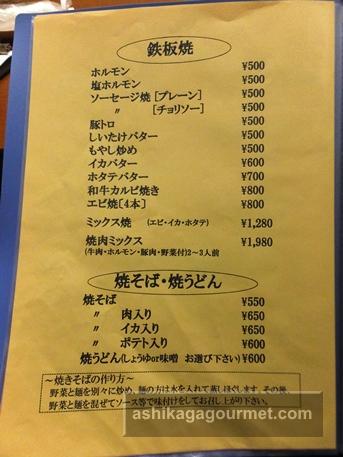 鉄板焼
ホルモン ¥500
塩ホルモン ¥500
ソーセージ焼 [プレーン] ¥500
〃 [チョリソー] ¥500
豚トロ ¥500
しいたけバター ¥500
もやし炒め ¥500
イカバター ¥600
ホタテバター ¥700
和牛カルビ焼き ¥800
エビ焼〔4本〕 ¥800
ミックス焼 (エビ・イカ・ホタテ) ¥1,280
焼肉ミックス ¥1,980
(牛肉・ホルモン・豚肉・野菜付)2～3人前
焼そば・焼うどん
焼そば ¥550
〃 肉入り ¥650
〃 イカ入り ¥650
〃 ポテト入り ¥600
焼うどん(しょうゆor味噌 お選び下さい) ¥600
～焼きそばの作り方～
野菜と麺を別々に炒め、麺の方は水を入れて蒸しほぐします。その後、
野菜と麺を混ぜてソース等で味付けをしてお召し上がり下さい。
ashikagagourmet.com